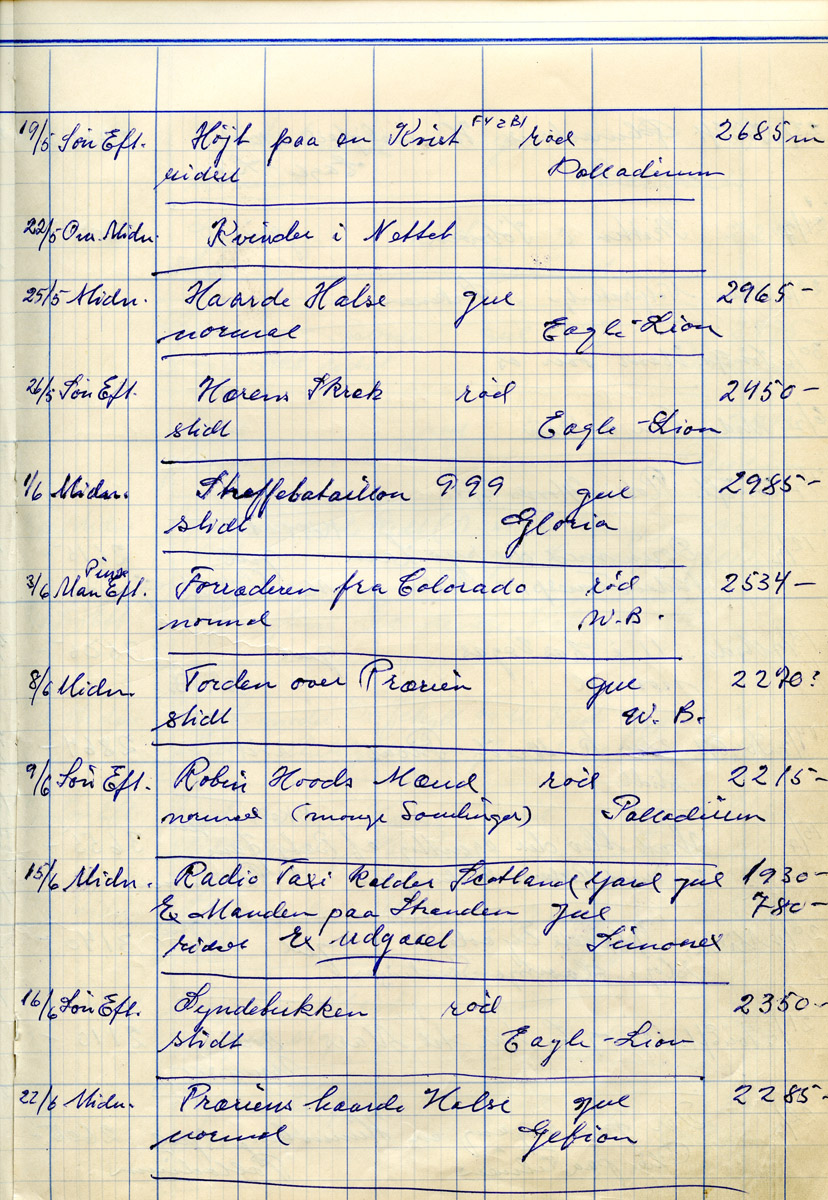 19/5 Søn Eft. Højt paa en Kvist FY & BI rød 2685 m
ridset Palladium
22/5 Ons. Midn. Kvinder i Nettet
25/5 Midn. Haarde Halse gul 2965 -
normal Eagle-Lion
26/5 Søn Eft. Hærens Skræk rød 2450 -
slidt Eagle-Lion
1/6 Midn. Straffebataillon 999 gul 2985 -
slidt Gloria
Pinse
3/6 Man Eft. Forræderen fra Colorado rød 2534 -
normal W.B.
8/6 Midn. Torden over Prærien gul 2270 ?
slidt W.B.
9/6 Søn Eft. Robin Hoods Mænd rød 2215 -
normal (mange Samlinger) Palladium
15/6 Midn. Radio Taxi kalder Scotland Yard gul 1930 -
Ex Manden paa Stranden gul 780 -
ridset Ex udgaael Simonex
16/6 Søn Eft. Syndebukken rød 2350 -
slidt Eagle-Lion
22/6 Midn. Præriens haarde Halse gul 2285 -
normal Gefion